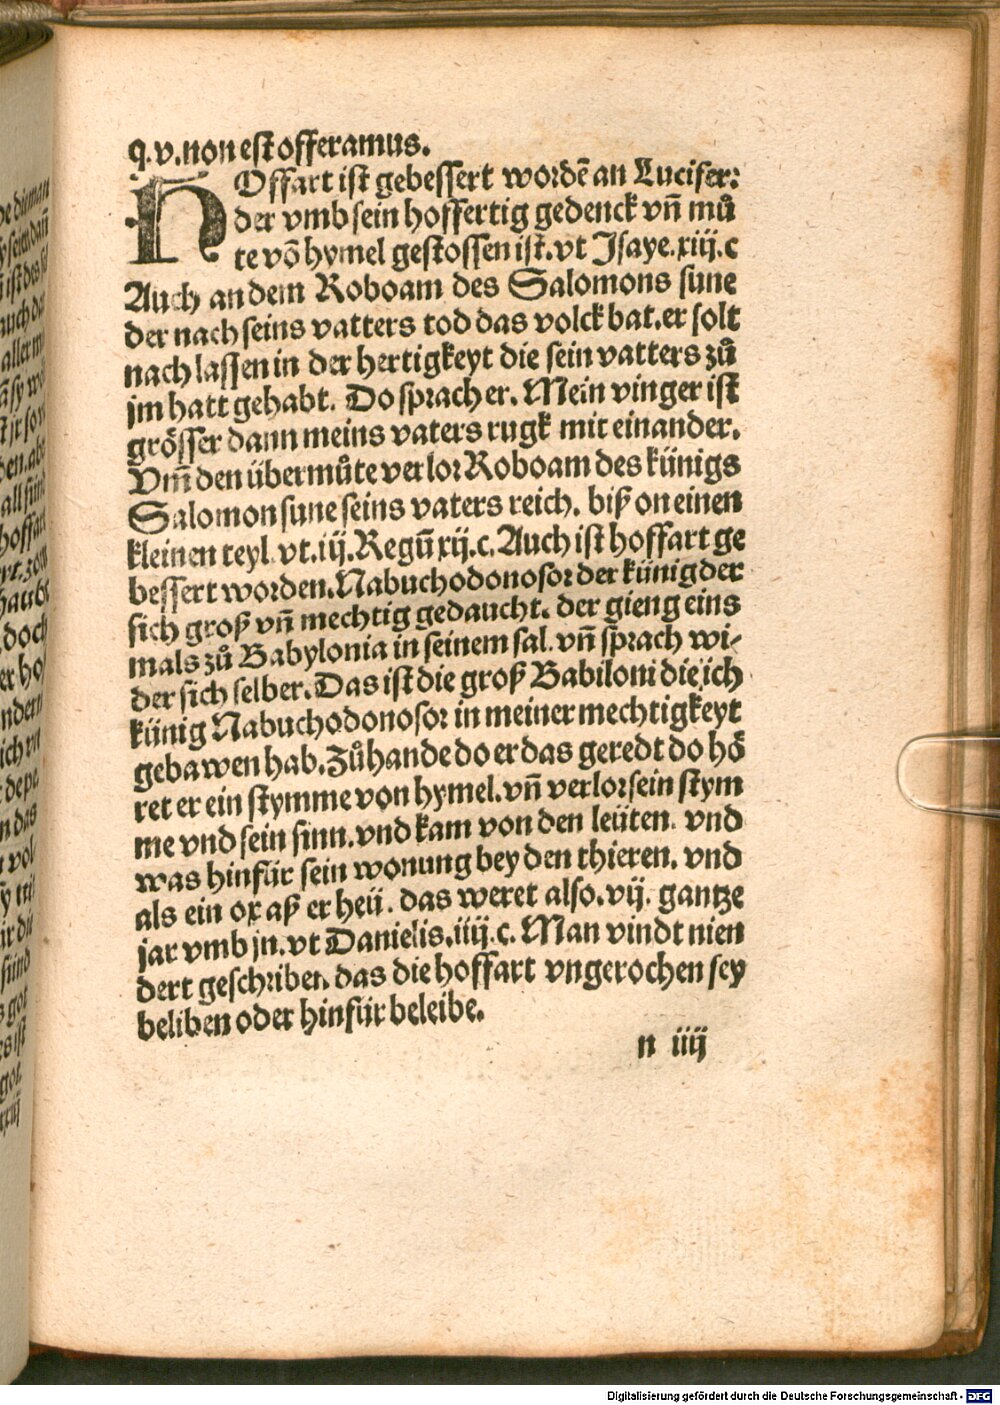 q.v.non est offeramus.
HOffart ist gebessert wordē an Lucifer:
der vmb sein hoffertig gedenck vñ mů
te vō hymel gestossen ist. vt Jsaye.xiij.c
Auch an dem Roboam des Salomons sune
der nach seins vatters tod das volck bat. er solt
nach lassen in der hertigkeyt die sein vatters zů
jm hatt gehabt. Do sprach er. Mein vinger ist
grösser dann meins vaters rugk mit einander.
Vm̄ den übermůte verlor Roboam des künigs
Salomon sune seins vaters reich. biß on einen
kleinen teyl. vt.iij.Regū xij.c. Auch ist hoffart ge
bessert worden. Nabuchodonosor der künig der
sich groß vñ mechtig gedaucht. der gieng eins
mals zů Babylonia in seinem sal. vñ sprach wi-
der sich selber. Das ist die groß Babiloni die ich
künig Nabuchodonosor in meiner mechtigkeyt
gebawen hab. Zůhande do er das geredt do hö
ret er ein stymme von hymel. vñ verlor sein stym
me vnd sein sinn. vnd kam von den leüten. vnd
was hinfür sein wonung bey den thieren. vnd
als ein ox aß er heü. das weret also. vij. gantze
jar vmb jn. vt Danielis.iiij.c. Man vindt nien
dert geschriben. das die hoffart vngerochen sey
beliben oder hinfür beleibe.
n iiij
Digitalisierung gefördert durch die Deutsche Forschungsgemeinschaft - DFG